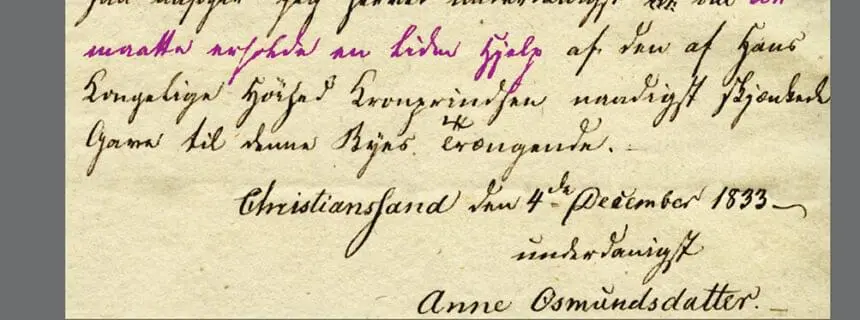 saa nødsges jeg herved underdanigst at om at
maatte erholde en liden Hjelp af den af Hans
Kongelige Höihed Kronprindsen naadigst skjænkede
Gave til denne Byes Trængende.
Christianssand den 4de December 1833
underdanigst
Anne Osmundsdatter.